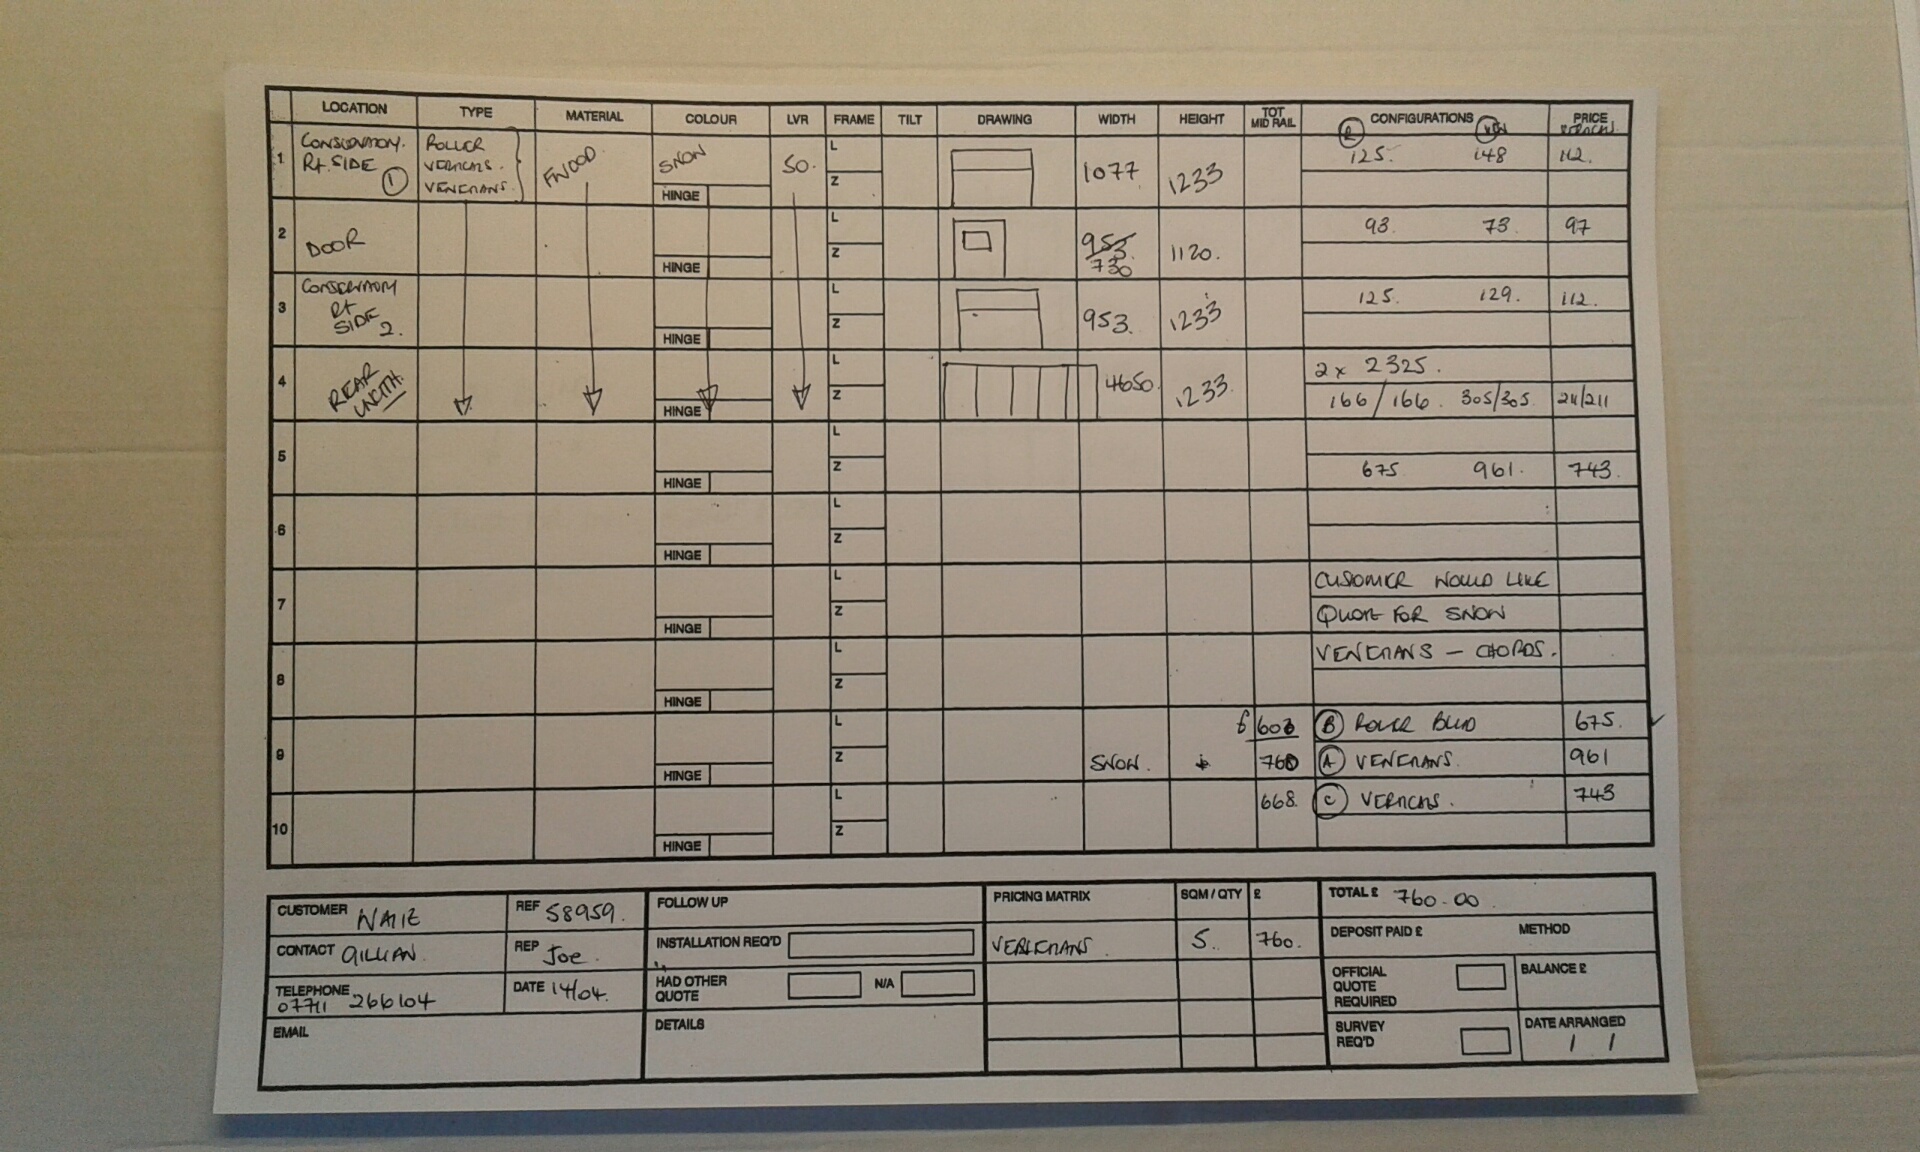 LOCATION TYPE MATERIAL COLOUR LVR FRAME TILT DRAWING WIDTH HEIGHT TOT MID RAIL CONFIGURATIONS PRICE
R VEN
1 CONSERVATORY ROLLER L 125. 148 112.
RT SIDE VERTICALS. FWOOD SNOW 50. 1077 1233
1 VENETIANS. HINGE Z
2 L 93. 73. 97
DOOR 953. 1120.
HINGE Z 730
3 CONSERVATORY L 125. 129. 112.
RT
SIDE 953. 1233
2. HINGE Z
4 REAR L 4650. 1233. 2x 2325.
HINGE Z 166/166. 305/305. 211/211
5 L
HINGE Z 675 961. 743.
6 L
HINGE Z
7 L CUSTOMER WOULD LIKE
HINGE Z QUOTE FOR SNOW
8 L VENETIANS - CHORDS.
HINGE Z
9 L £ B ROLLER BLIND 675.
HINGE Z SNOW. 760 A VENETIANS. 961
10 L 668. C VERTICALS. 743
HINGE Z
CUSTOMER WAITE REF 58959. FOLLOW UP PRICING MATRIX SQM / QTY £ TOTAL £ 760.00
CONTACT GILLIAN REP Joe. INSTALLATION REQ'D VENETIANS 5. 760. DEPOSIT PAID £ METHOD
TELEPHONE DATE 14/04. HAD OTHER QUOTE N/A OFFICIAL QUOTE REQUIRED BALANCE £
07711 266104
EMAIL DETAILS SURVEY REQ'D DATE ARRANGED
/ /